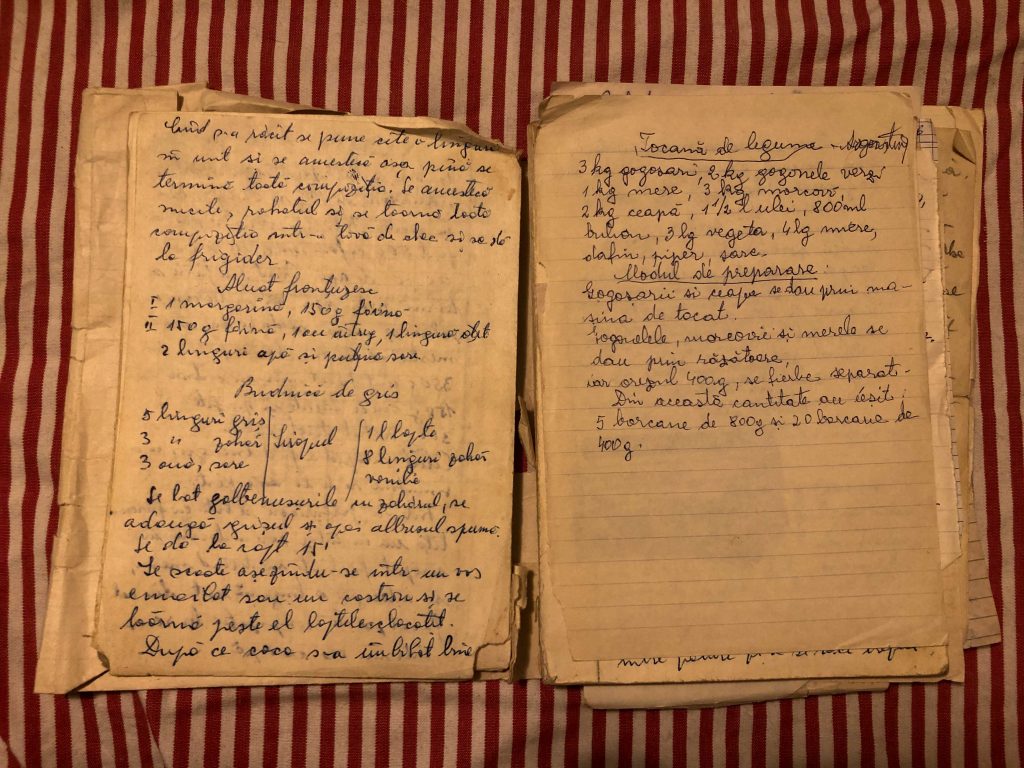 Cînd s-a răcit se pune cîte o lingură
în unt si se amestică așa pînă se
termină toată compoziția. Se amestecă
nucile, rahatul si se toarnă toată
compoziția într-o tavă de chec si se dă
la frigider.
Aluat franțuzesc
I 1 margarină, 150 g făină
II 150 g făină, 1 ou întreg, 1 lingură oțet
2 linguri apă si puțină sare.
Budincă de gris
5 linguri gris
3 " zahăr
3 ouă, sare
Siropul
1 l lapte
8 linguri zahăr
vanilie
Se bat gălbenusurile cu zahărul, se
adaugă grisul si apoi albusul spumă.
Se dă la copt 15'
Se scoate asezîndu-se într-un vas
emailat sau un castron si se
toarnă peste el laptele clocotit.
După ce coca s-a îmbibat bine
Tocană de legume - Argentina
3 kg gogosari, 2 kg gogonele verzi
1 kg mere, 3 kg morcovi
2 kg ceapă, 1 1/2 l ulei, 800 ml
bulion, 3 lg vegeta, 4 lg miere,
dafin, piper, sare.
Modul de preparare:
Gogosarii si ceapa se dau prin ma-
sina de tocat.
Gogonelele, morcovii si merele se
dau prin răzătoare,
iar orezul 400 g, se fierbe separat.-
Din această cantitate au iesit:
5 borcane de 800 g și 20 borcane de
400 g.